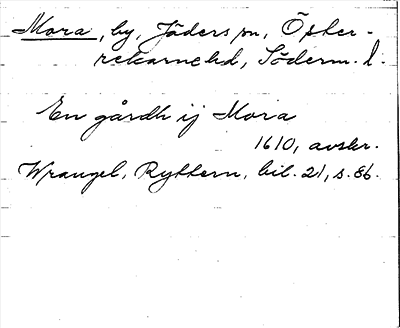 Mora, by, Jäders sn, Öster-
rekarne hd, Söderm. l.
En gårdh ij Mora
1610, avskr.
Wrangel, Ryttern, bil. 21, s. 86.